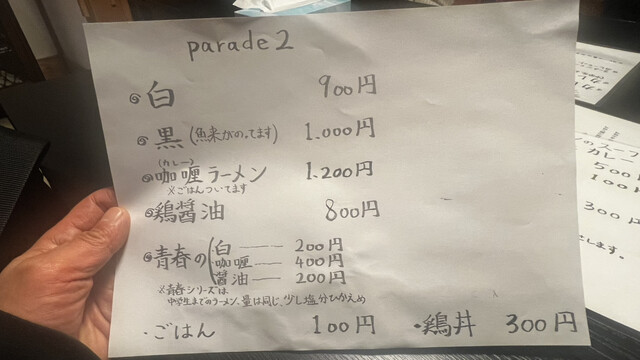 parade 2
白 900円
黒(魚来がのってます) 1.000円
(カレー)
咖喱ラーメン 1.200円
※ごはんついてます
鶏醤油 800円
青春の
白 ― 200円
咖喱 ― 400円
醤油 ― 200円
※青春シリーズは
中学生までのラーメン、量は同じ、少し塩分ひかえめ
・ごはん 100円
・鶏丼 300円
のスープ
カレー
500円
100
300円
します。